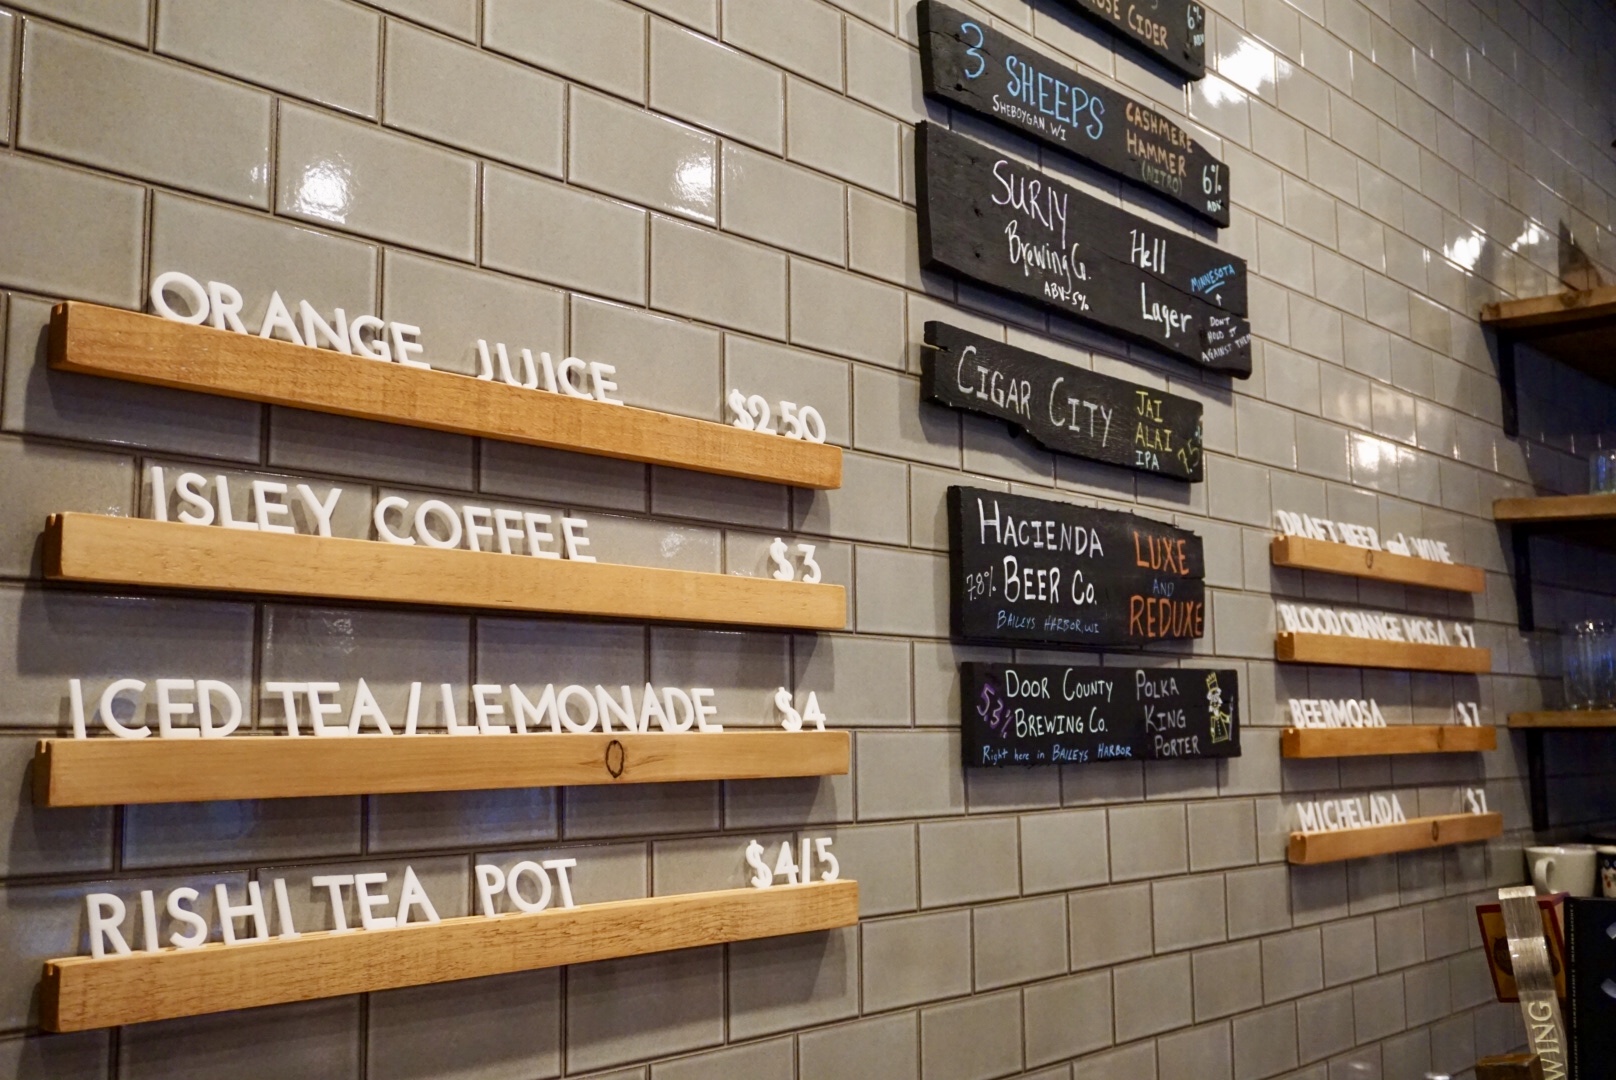 ORANGE JUICE $2.50
ISLEY COFFEE $3
ICED TEA/LEMONADE $4
RISHI TEA POT $4/5
CIDER
6%
3 SHEEPS
SHEBOYGAN, WI
CASHMERE
HAMMER
(NITRO)
6%
ABV
SURLY
Brewing Co.
ABV=5%
Hell
Lager
MINNESOTA
DON'T
HOLD IT
AGAINST THEM
CIGAR CITY
JAI
ALAI
IPA
7.5%
HACIENDA
7.8% BEER CO.
BAILEYS HARBOR, WI
LUXE
AND
REDUXE
5.3%
DOOR COUNTY
BREWING CO.
Right here in BAILEYS HARBOR
POLKA
KING
PORTER
DRAFT BEER and WINE
BLOOD ORANGE MOSA $7
BEERMOSA $7
MICHELADA $7